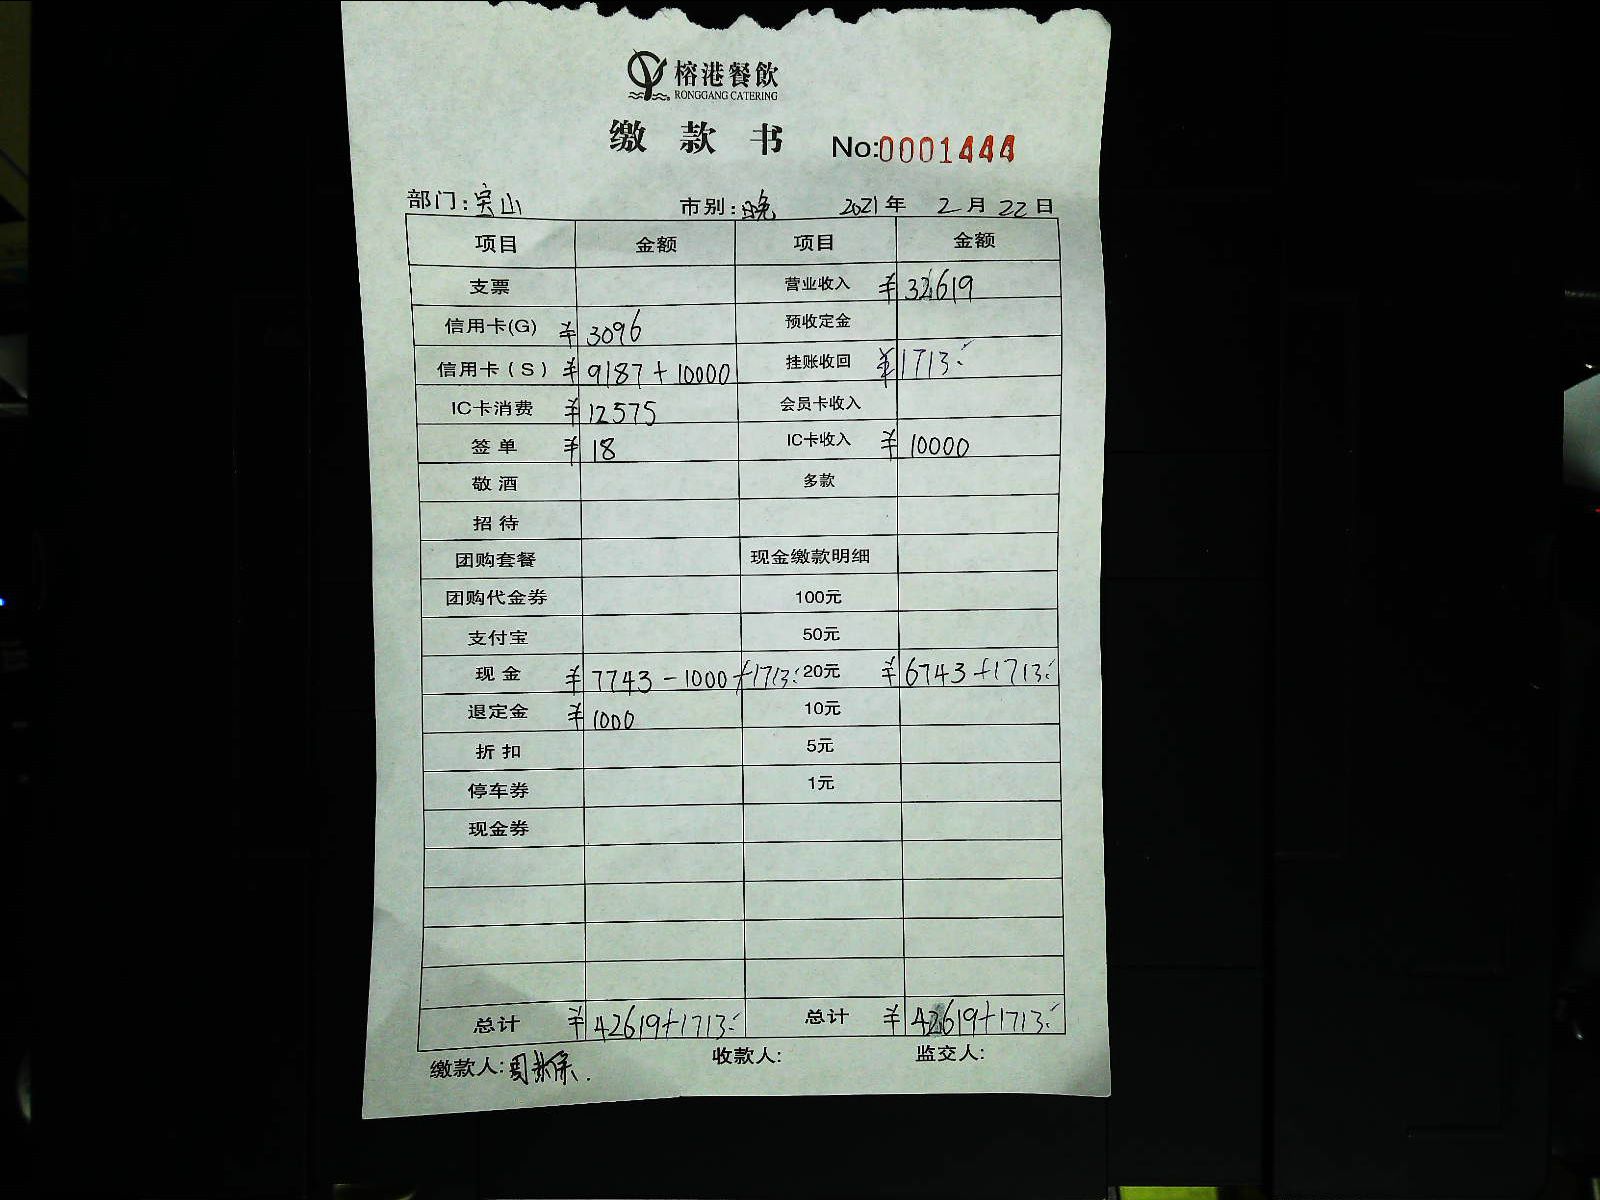 榕港餐飲
RONGGANG CATERING
缴 款 书 No:0001444
部门: 宝山 市别: 晚 2021年 2月 22日
项目 金额 项目 金额
支票 营业收入 ¥ 32619
信用卡(G) ¥ 3096 预收定金
信用卡(S) ¥ 9187+10000 挂账收回 ¥ 1713.
IC卡消费 ¥ 12575 会员卡收入
签单 ¥ 18 IC卡收入 ¥ 10000
敬酒 多款
招待
团购套餐 现金缴款明细
团购代金券 100元
支付宝 50元
现金 ¥ 7743-1000+1713. 20元 ¥ 6743+1713.
退定金 ¥ 1000 10元
折扣 5元
停车券 1元
现金券
总计 ¥ 42619+1713. 总计 ¥ 42619+1713.
缴款人: 收款人: 监交人: